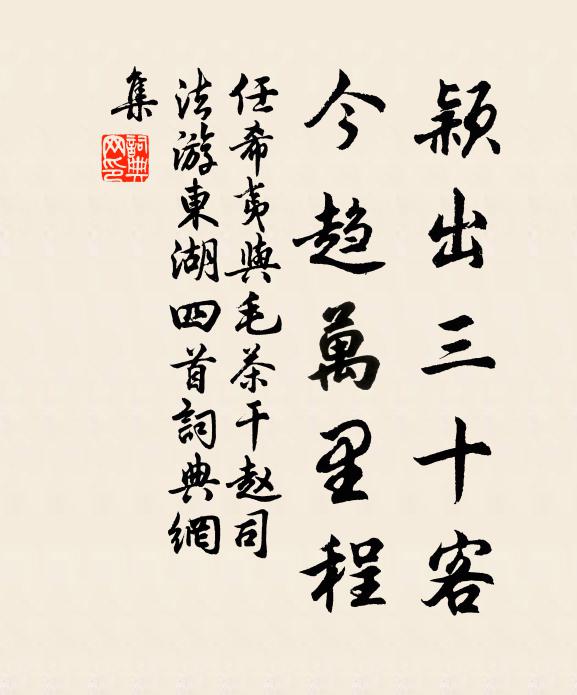 颖出三十客
今趋萬里程
任希夷與毛茶干赵司
法游東湖四首詞典網
集
詞典
网印